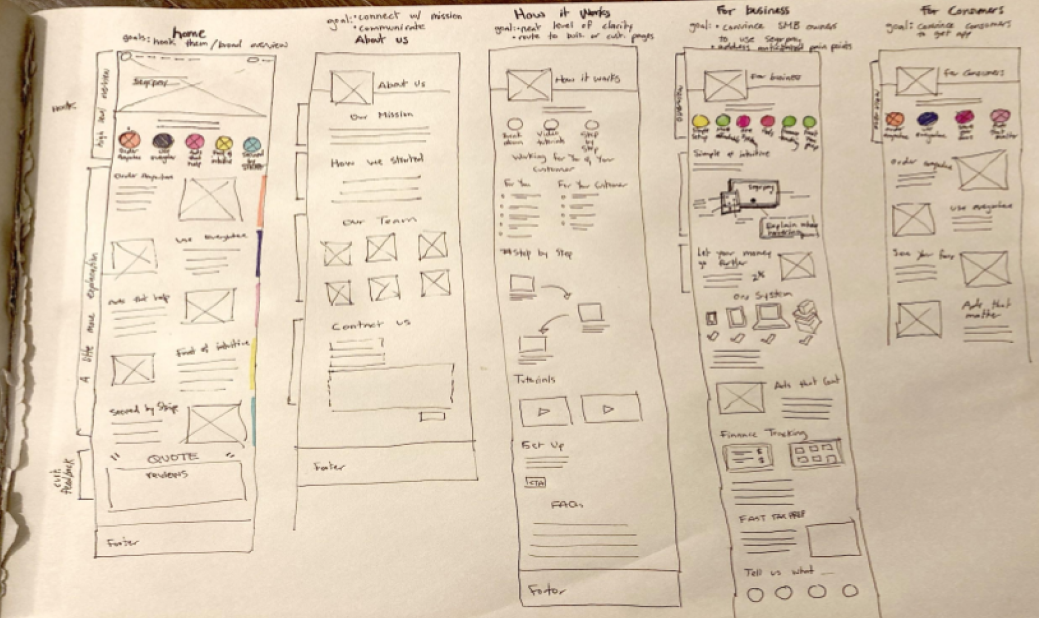 home
goals: hook them / broad overview
high level overview
Segpay
Order Anywhere
use everywhere
Ads that help
Fast & intuitive
Secured by Stripe
Order Anywhere
Use Everywhere
Ads that help
Fast & intuitive
Secured by Stripe
A little more explanation
QUOTE
reviews
cust. feedback
Footer
goal: • connect w/ mission
• communicate
About us
About Us
Our Mission
How we started
Our Team
Contact us
Footer
How it Works
goal: next level of clarity
• route to busi. or cust. pages
How it works
Break down
Video tutorials
Step by Step
Working for You & Your
Customer
For You
For Your Customer
Step by Step
Tutorials
Set Up
CTA
FAQs
Footer
For business
goal: • convince SMB owners
to use Segpay
• address pain points
overview
For business
Simple setup
Simple & intuitive
Segpay
Explain
Let your money
go further
2%
On System
Ads that Count
Finance Tracking
FAST TAX PREP
Tell us what
For Consumers
goal: convince consumers
to get app
overview
For Consumers
Order Anywhere
Use everywhere
Ads that matter
Order Anywhere
Use everywhere
See Your
Ads that
matter
Footer